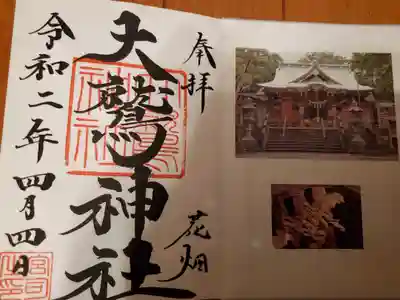 奉拝
花畑
大鷲神社
令和二年四月四日